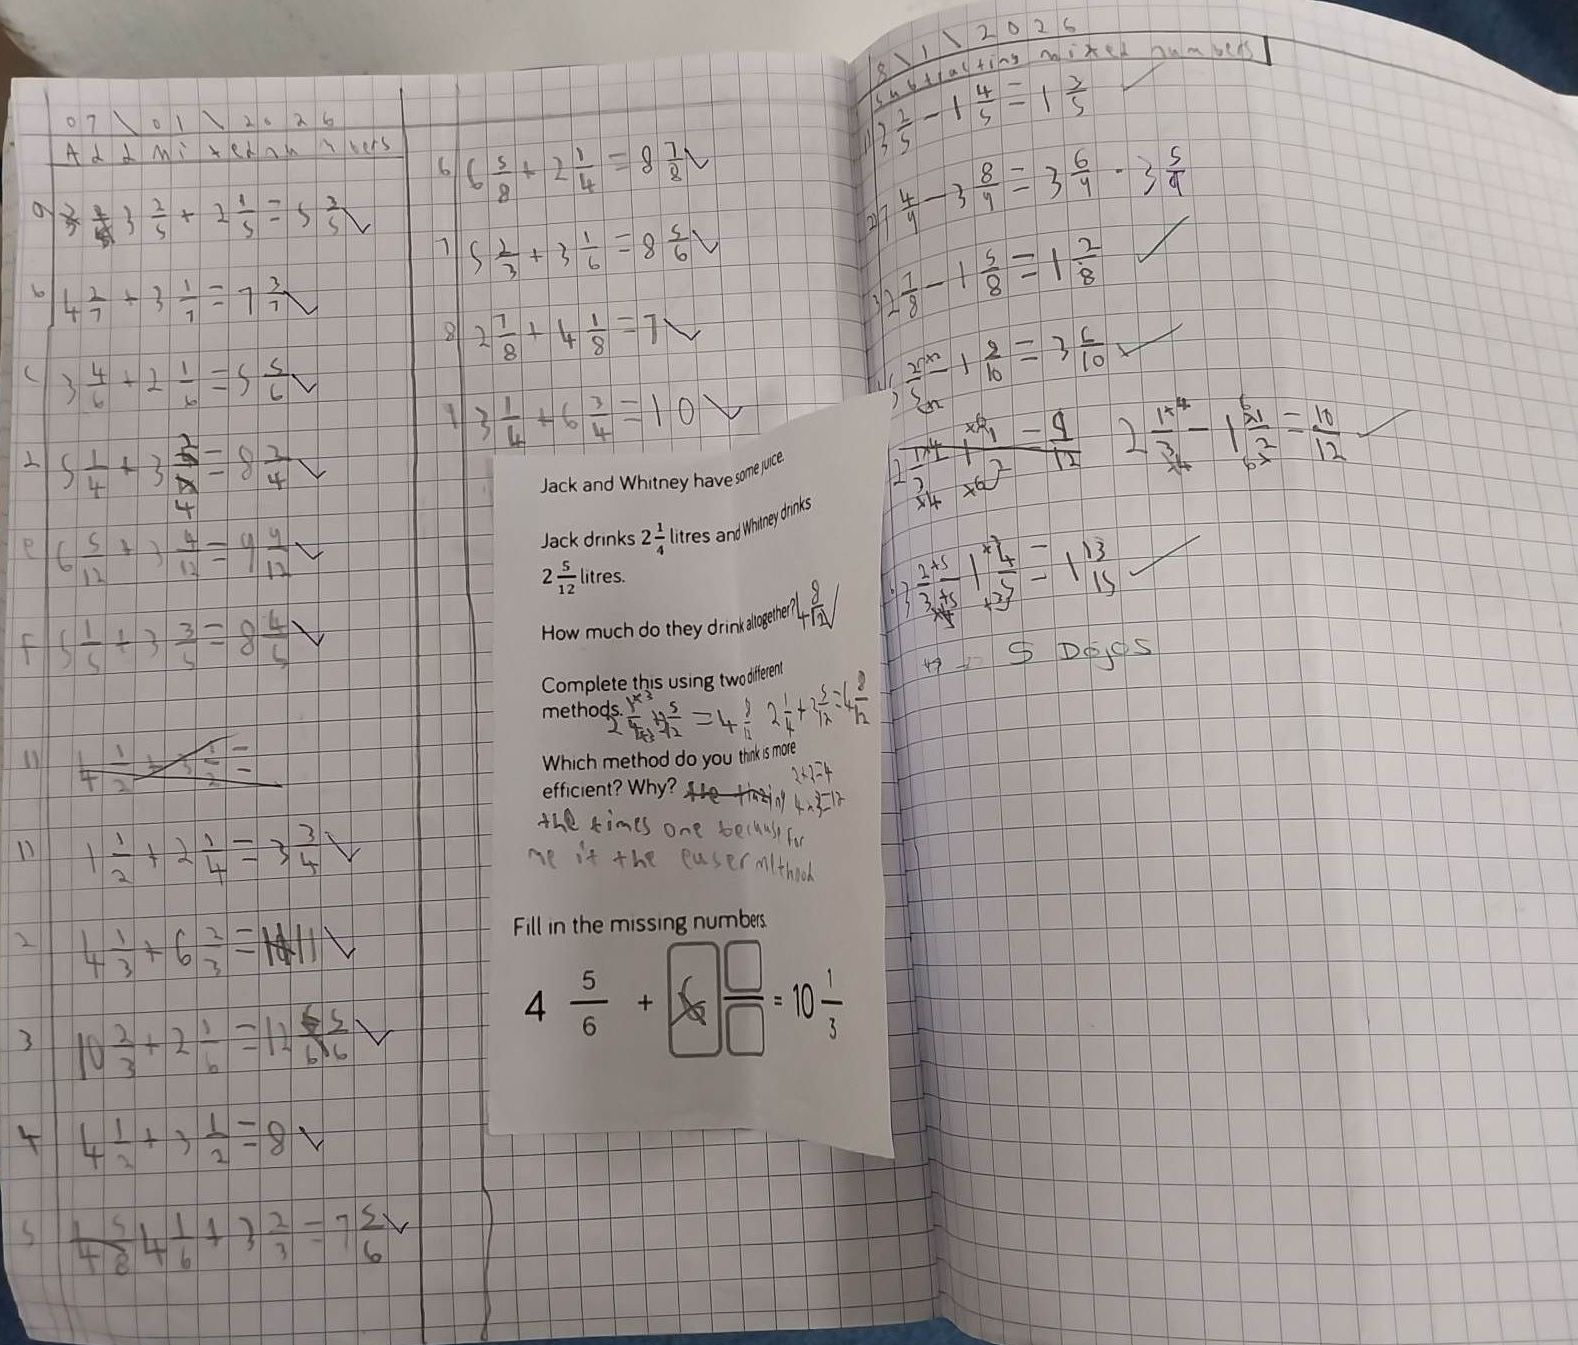 07\01\2026
Add mixed numbers
a 3 2/5 + 2 1/5 = 5 3/5 ✓
b 4 2/7 + 3 1/7 = 7 3/7 ✓
c 3 4/6 + 2 1/6 = 5 5/6 ✓
d 5 1/4 + 3 2/4 = 8 3/4 ✓
e 6 5/12 + 3 4/12 = 9 9/12 ✓
f 5 1/5 + 3 3/5 = 8 4/5 ✓
1) 1 1/2 + 2 1/4 = 3 3/4 ✓
2 4 1/3 + 6 2/3 = 11 ✓
3 10 2/3 + 2 1/6 = 12 5/6 ✓
4 4 1/2 + 3 1/2 = 8 ✓
5 4 1/6 + 3 2/3 = 7 5/6 ✓
6 6 5/8 + 2 1/4 = 8 7/8 ✓
7 5 2/3 + 3 1/6 = 8 5/6 ✓
8 2 7/8 + 4 1/8 = 7 ✓
9 3 1/4 + 6 3/4 = 10 ✓
Jack and Whitney have some juice.
Jack drinks 2 1/4 litres and Whitney drinks
2 5/12 litres.
How much do they drink altogether? 4 8/12 ✓
Complete this using two different
methods. = 4 8/12 2 1/4 + 2 5/12 = 4 8/12
Which method do you think is more
efficient? Why?
2+2=4
4×3=12
the times one because for
me it the euser mithod
Fill in the missing numbers.
4 5/6 + 6 = 10 1/3
8\1\2026
Subtracting mixed numbers
1) 3 2/5 - 1 4/5 = 1 3/5 ✓
2) 7 4/9 - 3 8/9 = 3 6/9 · 3 5/9
3) 2 7/8 - 1 5/8 = 1 2/8 ✓
= 3 6/10 ✓
2 1/3 ×4 - 1 1/2 ×6 = 10/12 ✓
3 2/3 ×5 - 1 4/5 ×3 = 1 13/15 ✓
5 Dojos